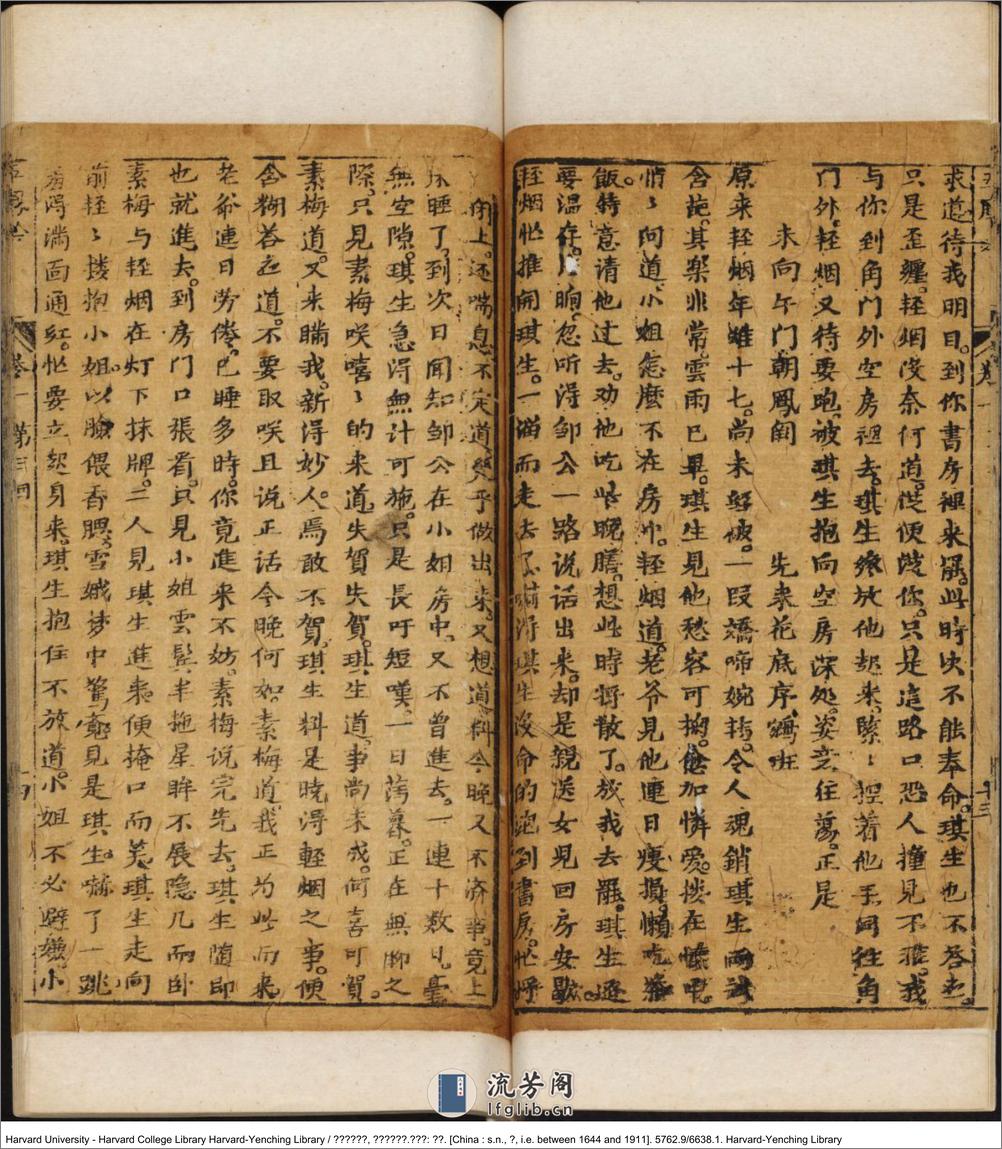 求道待我明日。到你書房裡来罷。此時决不能奉命。琪生也不答應。
只是歪纏。轻烟没奈何道。従便従你。只是這路口恐人撞見不雅。我
与你到角門外空房裡去。琪生纔放他起来。緊〻揑着他手同徃角
門外。轻烟又待要跑。被琪生抱向空房深処。姿意在蕩。正是
未向午門朝鳳闕　先来花底序鵷班
原来轻烟年雖十七。尚未好被。一段嬌啼婉轉。令人魂銷。琪生両
含情。其楽非常。雲雨已畢。琪生見他愁容可掬。愈加憐愛。搂在懐中
悄〻问道。小姐怎麽不在房中。轻烟道。老爷見他連日瘦損懶吃茶
飯。特意请他过去。劝他吃些晚膳。想此時将散了。放我去罷。琪生
要温存。片晌。忽听得邹公一路说话出来。却是親送女児回房安歇。
轻烟忙推開琪生。一溜而走去了。琪生没命的跑到書房。忙将
上。还喘息不定。道。幾乎做出来。又想道料今晚又不済事。竟上
床睡了。到次日聞知邹公在小姐房中。又不曾進去。一連十数日。
無空隙。琪生急得無計可施。只是長吁短嘆。一日薄暮。正在無聊之
際。只見素梅咲嘻〻的来道。失賀失賀。琪生道。事尚未成。何喜可賀。
素梅道。又来瞞我。新得妙人。焉敢不賀。琪生料是晓得軽烟之事。便
含糊答应道。不要取咲。且说正话。今晚何如。素梅道。我正为此而来。
老爷連日劳倦。已睡多時。你竟進来不妨。素梅说完先去。琪生随即
也就進去。到房门口張看。只見小姐雲髩半拖。星眸不展。隐几而卧
素梅与轻烟在灯下抹牌。二人見琪生進来。便掩口而笑。琪生走向
前。轻〻搂抱小姐。以臉偎香腮。雪娥梦中驚寤。見是琪生。嚇了一跳。
羞得满面通红。忙要立起身来。琪生抱住不放道。小姐不必避嫌。小
卷一 第三回
十三
十四
流芳阁
lfglib.cn
Harvard University - Harvard College Library Harvard-Yenching Library / ??????, ??????.???: ??. [China : s.n., ?, i.e. between 1644 and 1911]. 5762.9/6638.1. Harvard-Yenching Library